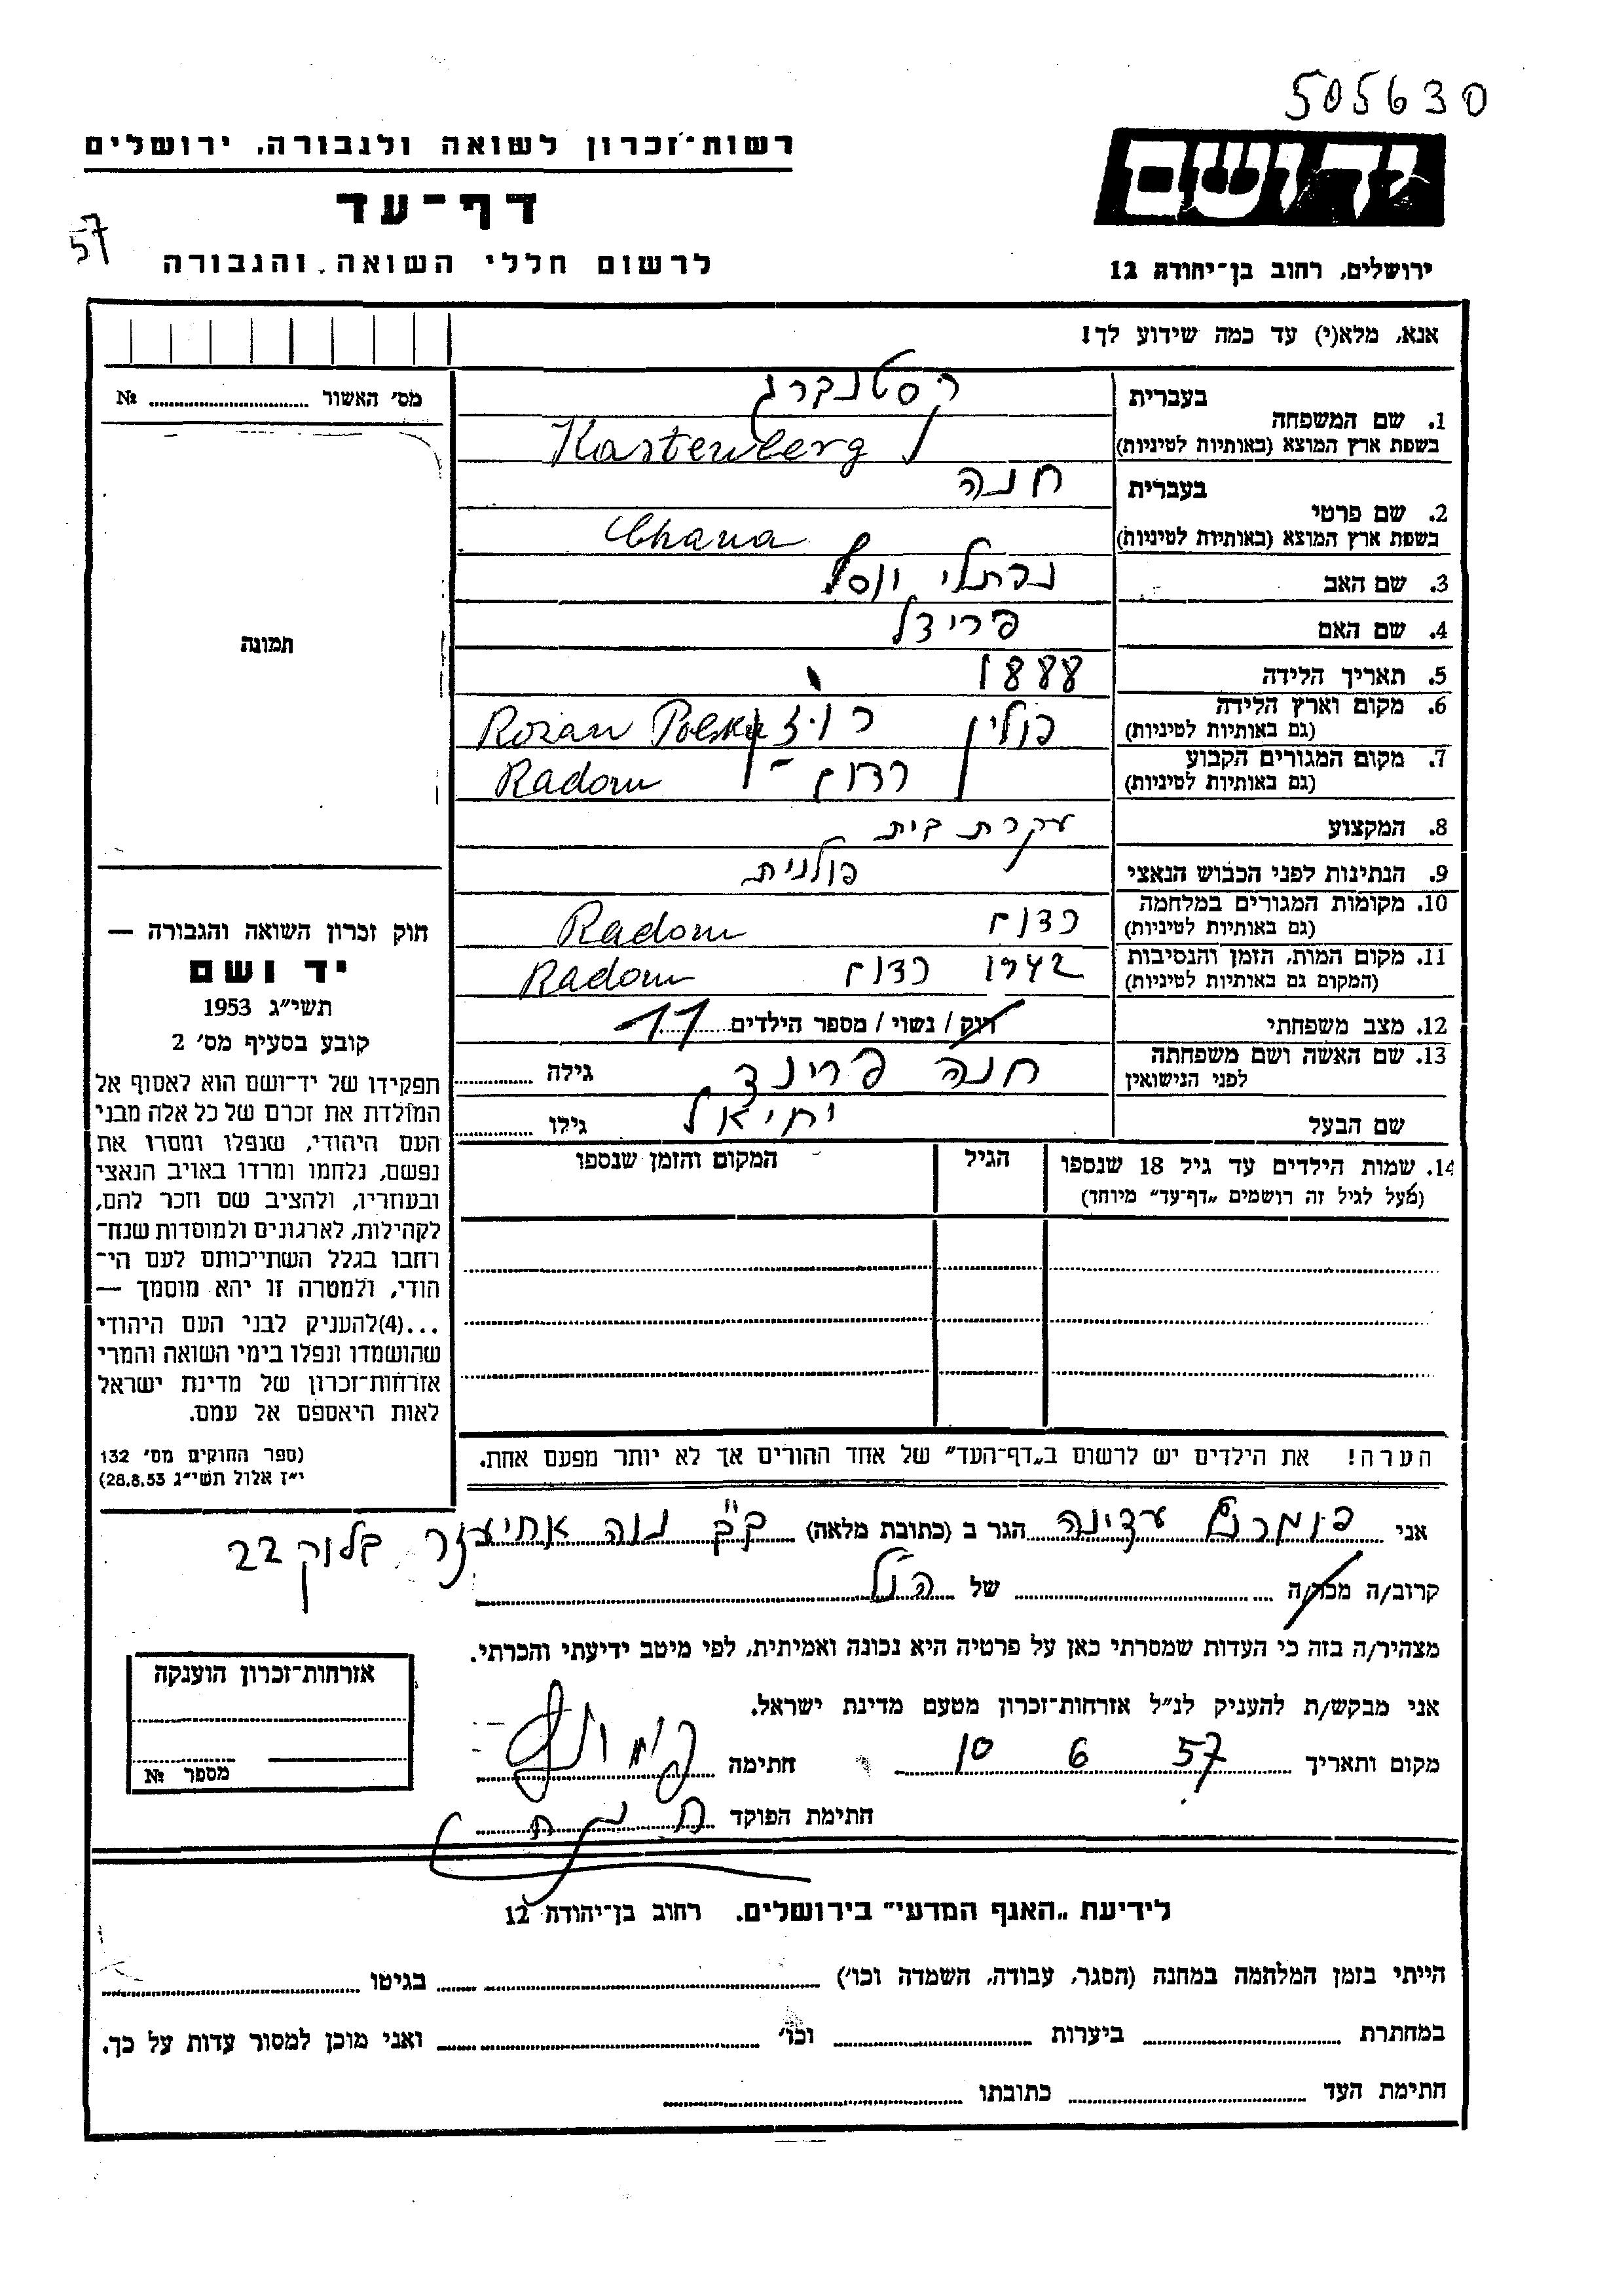 505630
רשות־זכרון לשואה ולגבורה, ירושלים
יד ושם
דף־עד
57
לרשום חללי השואה והגבורה
ירושלים, רחוב בן־יהודה 12
אנא, מלא(י) עד כמה שידוע לך!
מס' האשור № ........
בעברית קסטנברג
1. שם המשפחה
בשפת ארץ המוצא (באותיות לטיניות) Kastenberg
בעברית חנה
2. שם פרטי
בשפת ארץ המוצא (באותיות לטיניות) Chana
3. שם האב נפתלי יוסף
4. שם האם פרידל
תמונה
5. תאריך הלידה 1888
6. מקום וארץ הלידה פולין Rozan Polska
(גם באותיות לטיניות)
7. מקום המגורים הקבוע רדום Radom
(גם באותיות לטיניות)
8. המקצוע עקרת בית
9. הנתינות לפני הכבוש הנאצי פולנית
10. מקומות המגורים במלחמה רדום Radom
(גם באותיות לטיניות)
11. מקום המות, הזמן והנסיבות 1942 רדום Radom
(המקום גם באותיות לטיניות)
12. מצב משפחתי רוק / נשוי / מספר הילדים 11
13. שם האשה ושם משפחתה חנה פרינד גילה ........
לפני הנישואין
שם הבעל יחיאל גילו ........
14. שמות הילדים עד גיל 18 שנספו הגיל המקום והזמן שנספו
(מעל לגיל זה רושמים „דף־עד” מיוחד)
הערה! את הילדים יש לרשום ב„דף־העד” של אחד ההורים אך לא יותר מפעם אחת.
חוק זכרון השואה והגבורה —
יד ושם
תשי"ג 1953
קובע בסעיף מס' 2
תפקידו של יד־ושם הוא לאסוף אל
המולדת את זכרם של כל אלה מבני
העם היהודי, שנפלו ומסרו את
נפשם, נלחמו ומרדו באויב הנאצי
ובעוזריו, ולהציב שם וזכר להם,
לקהילות, לארגונים ולמוסדות שנח־
רחבו בגלל השתייכותם לעם הי־
הודי, ולמטרה זו יהא מוסמך —
...(4)להעניק לבני העם היהודי
שהושמדו ונפלו בימי השואה והמרי
אזרחות־זכרון של מדינת ישראל
לאות היאספם אל עמם.
(ספר החוקים מס' 132
י"ז אלול תשי"ג 28.8.53)
אני עדינה הגר ב (כתובת מלאה) נוה אחיעזר בלוק 22
קרוב/ה מכר/ה ........ של הנ"ל
מצהיר/ה בזה כי העדות שמסרתי כאן על פרטיה היא נכונה ואמיתית, לפי מיטב ידיעתי והכרתי.
אני מבקש/ת להעניק לנ"ל אזרחות־זכרון מטעם מדינת ישראל.
מקום ותאריך 57 6 10 חתימה
חתימת הפוקד
אזרחות־זכרון הוענקה
מספר №
לידיעת „האגף המדעי” בירושלים. רחוב בן־יהודה 12
הייתי בזמן המלחמה במחנה (הסגר, עבודה, השמדה וכו') ........ בגיטו ........
במחתרת ........ ביערות ........ וכו' ........ ואני מוכן למסור עדות על כך.
חתימת העד ........ כתובתו ........